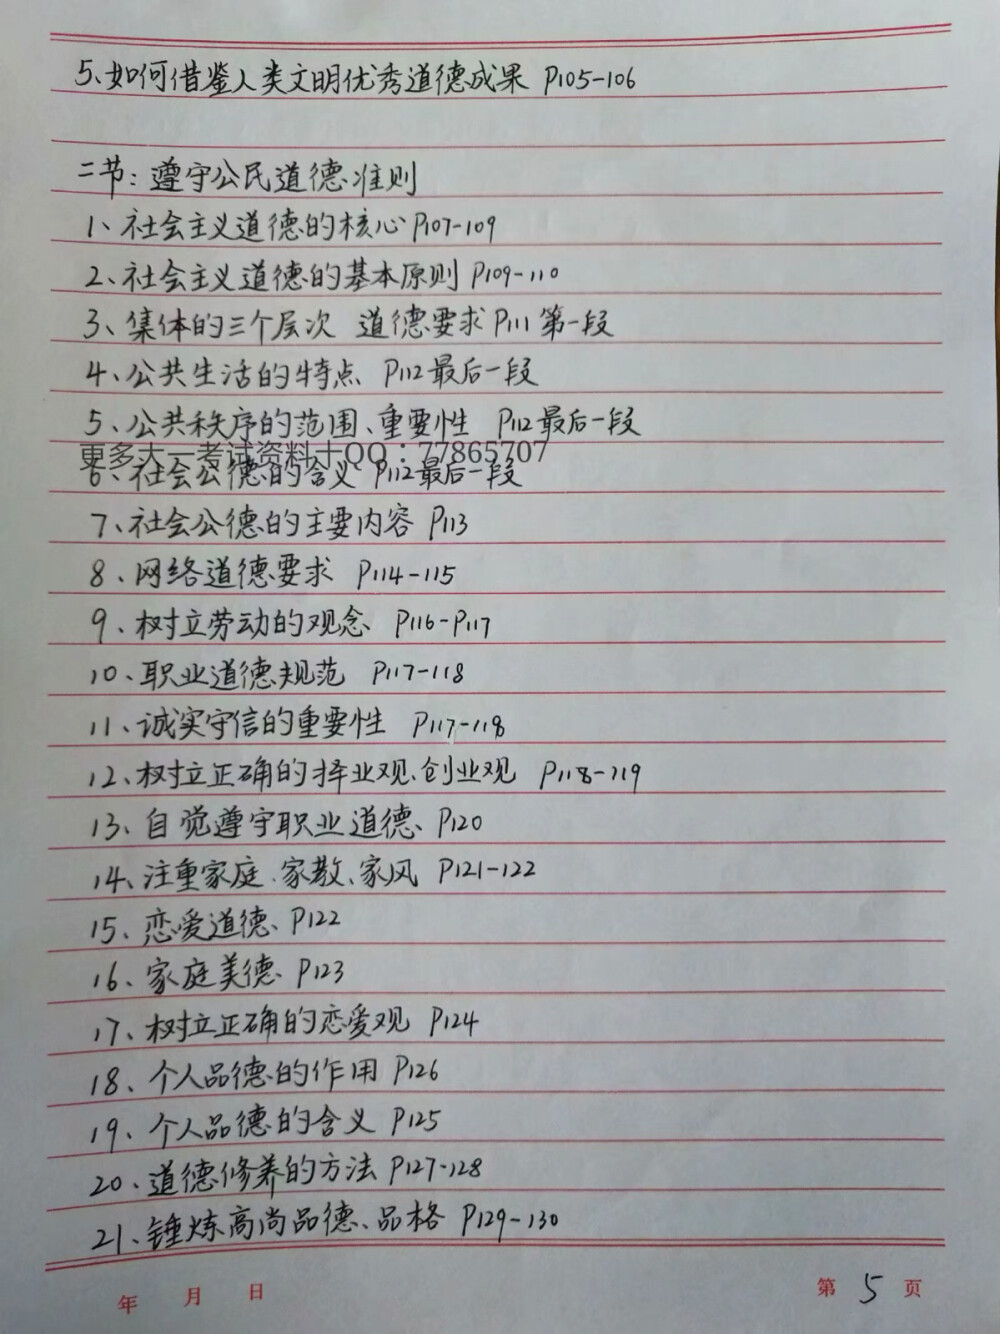 5、如何借鉴人类文明优秀道德成果 P105-106
二节：遵守公民道德准则
1、社会主义道德的核心 P107-109
2、社会主义道德的基本原则 P109-110
3、集体的三个层次 道德要求 P111 第一段
4、公共生活的特点 P112 最后一段
5、公共秩序的范围、重要性 P112 最后一段
更多大一考试资料+QQ：77865707
6、社会公德的含义 P112 最后一段
7、社会公德的主要内容 P113
8、网络道德要求 P114-115
9、树立劳动的观念 P116-P117
10、职业道德规范 P117-118
11、诚实守信的重要性 P117-118
12、树立正确的择业观、创业观 P118-119
13、自觉遵守职业道德、P120
14、注重家庭、家教、家风 P121-122
15、恋爱道德、P122
16、家庭美德、P123
17、树立正确的恋爱观 P124
18、个人品德的作用 P126
19、个人品德的含义 P125
20、道德修养的方法 P127-128
21、锤炼高尚品德、品格 P129-130
年 月 日 第 5 页